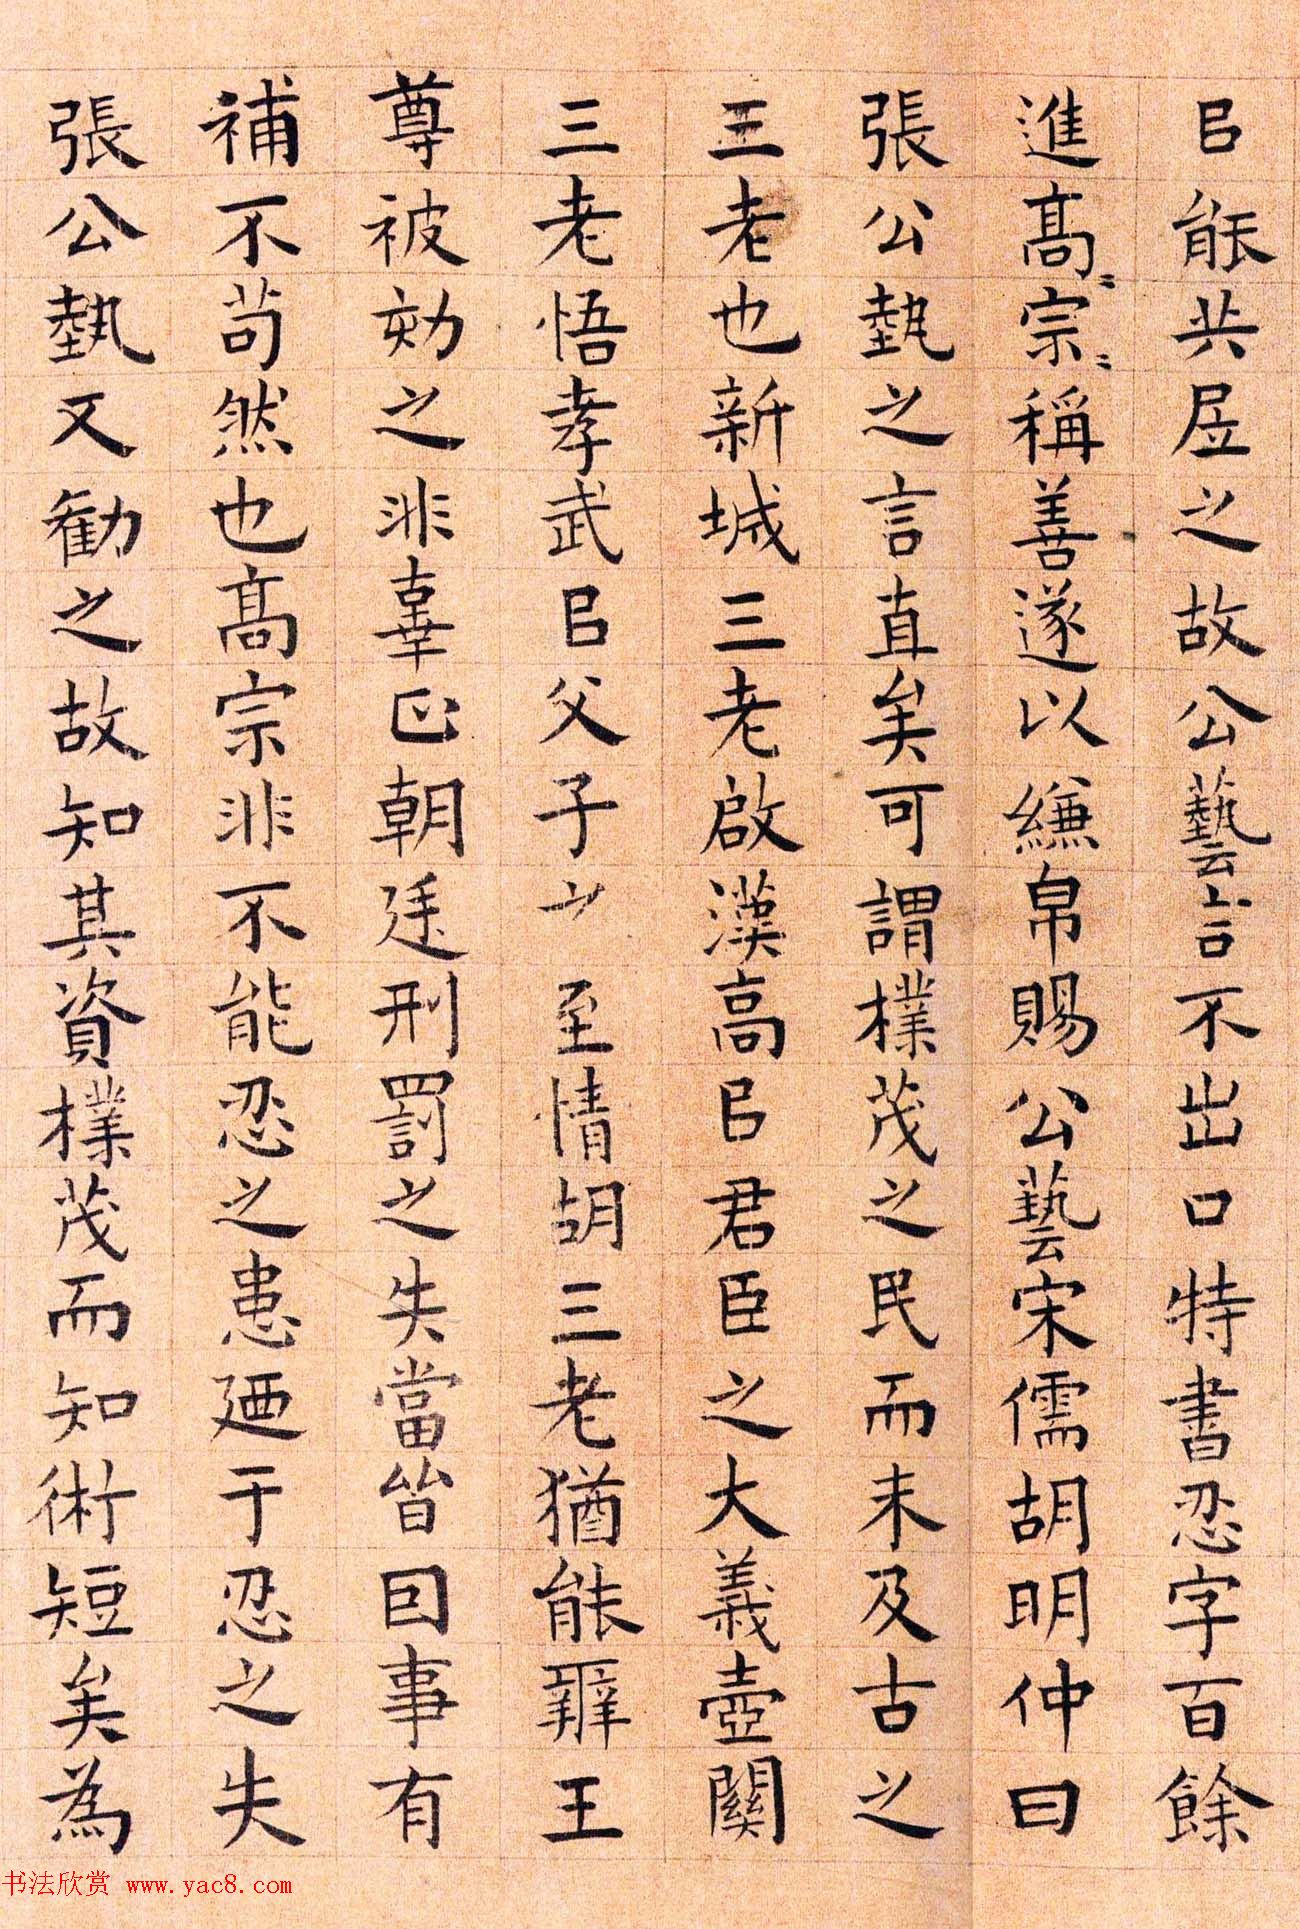 㠯能共居之故公藝言不出口特書忍字百餘
進高〻宗〻稱善遂以縑帛賜公藝宋儒胡明仲曰
張公埶之言直矣可謂樸茂之民而未及古之
王老也新城三老啟漢高㠯君臣之大義壺關
三老悟孝武㠯父子之至情胡三老猶能辯王
尊被劾之非辜正朝廷刑罰之失當皆因事有
補不苟然也高宗非不能忍之患廼于忍之失
張公埶又勸之故知其資樸茂而知術短矣為
书法欣赏 www.yac8.com